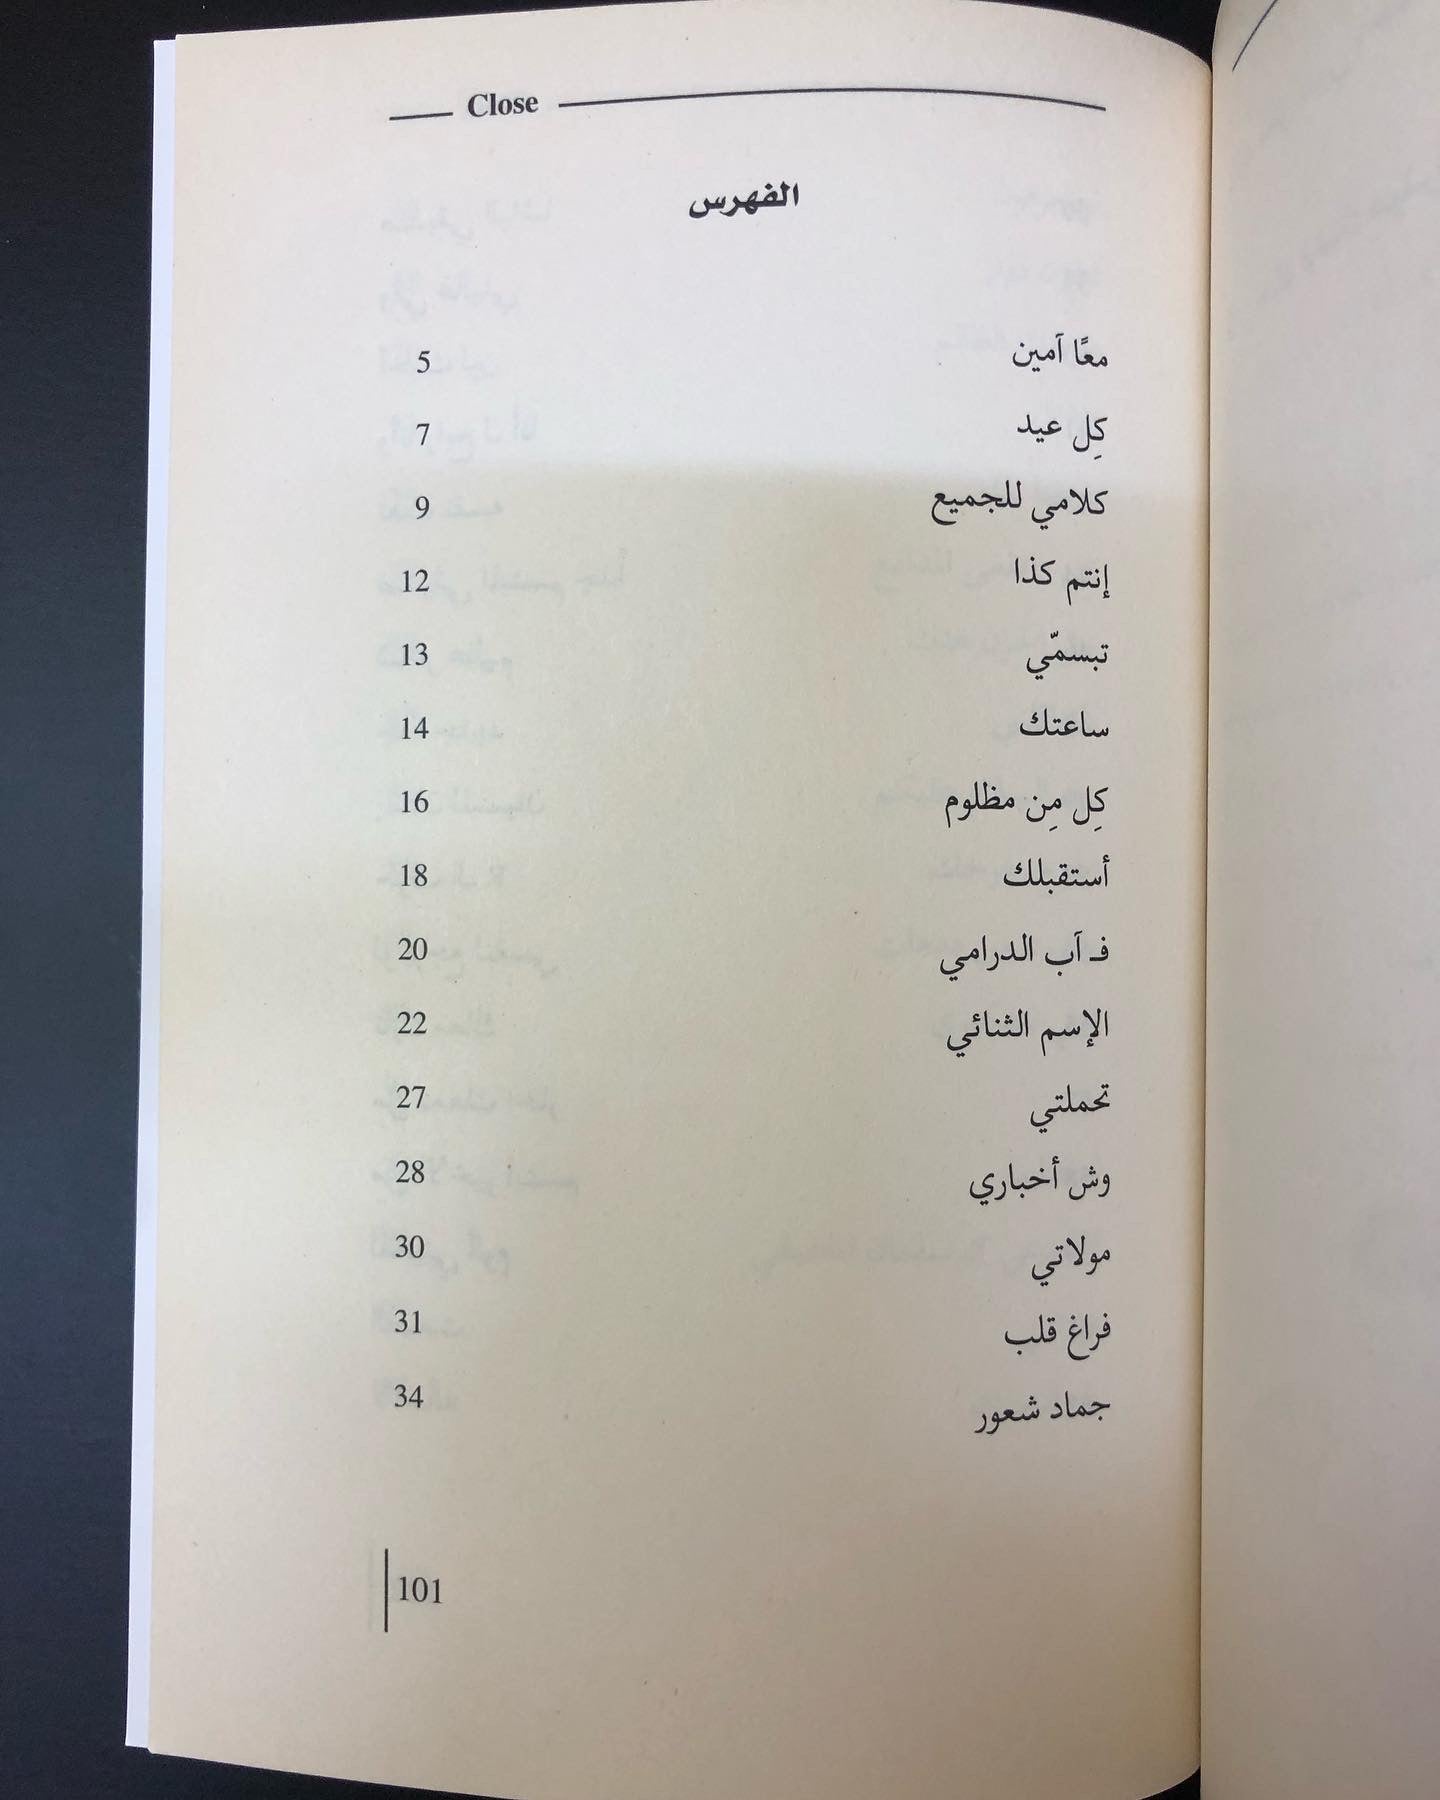 Close
الفهرس
معًا آمين 5
كِل عيد 7
كلامي للجميع 9
إنتم كذا 12
تبسمّي 13
ساعتك 14
كِل مِن مظلوم 16
أستقبلك 18
فـ آب الدرامي 20
الإسم الثنائي 22
تحملتي 27
وش أخباري 28
مولاتي 30
فراغ قلب 31
جماد شعور 34
101